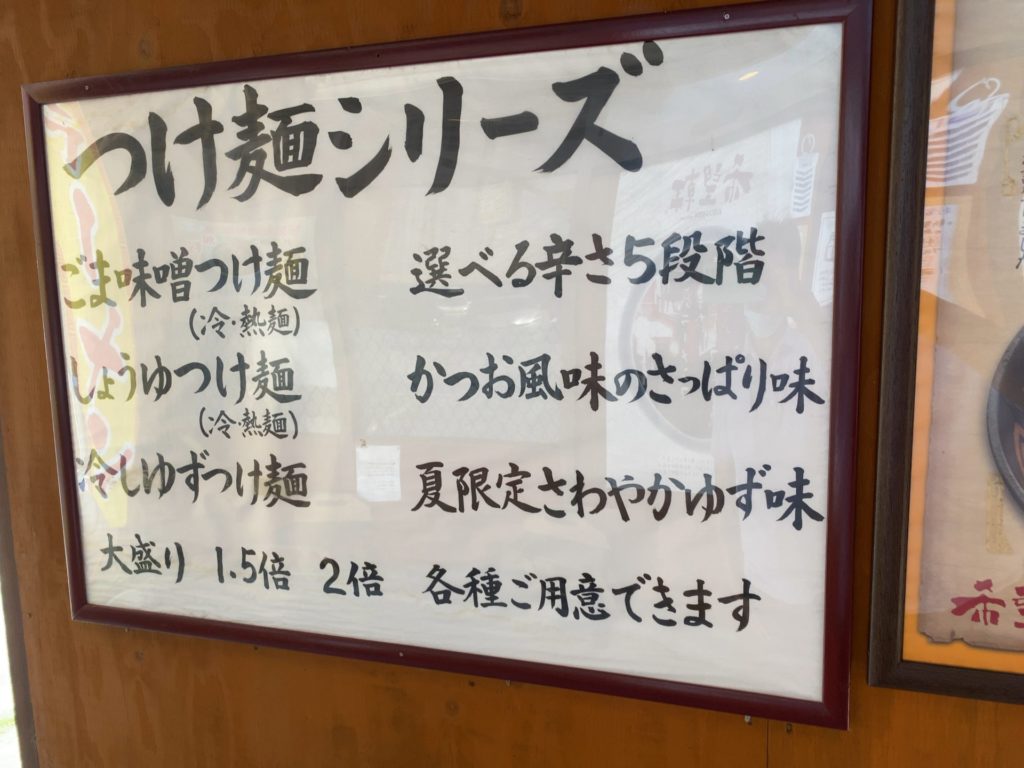 つけ麺シリーズ
ごま味噌つけ麺 選べる辛さ5段階
(冷・熱麺)
しょうゆつけ麺 かつお風味のさっぱり味
(冷・熱麺)
冷しゆずつけ麺 夏限定さわやかゆず味
大盛り 1.5倍 2倍 各種ご用意できます